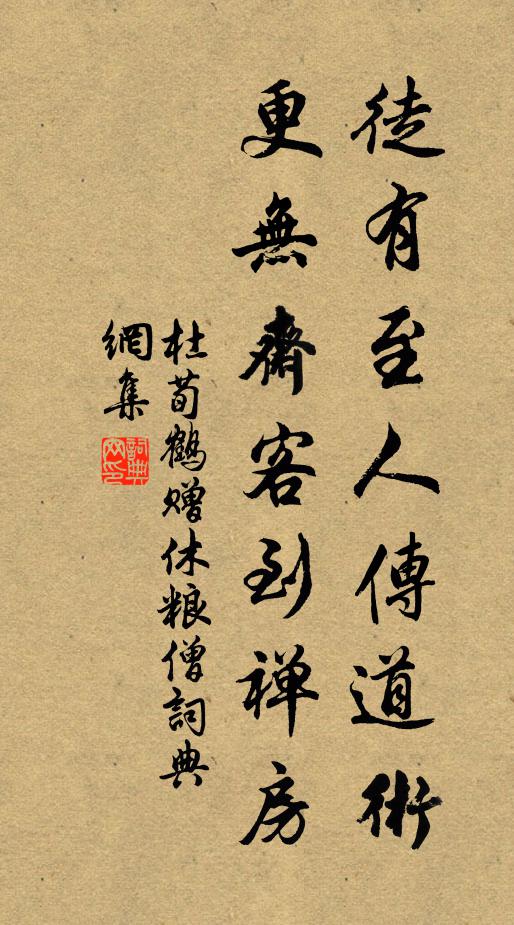 徒有至人傳道術
更無齋客到禅房
杜荀鶴赠休粮僧詞典
網集
詞典网印